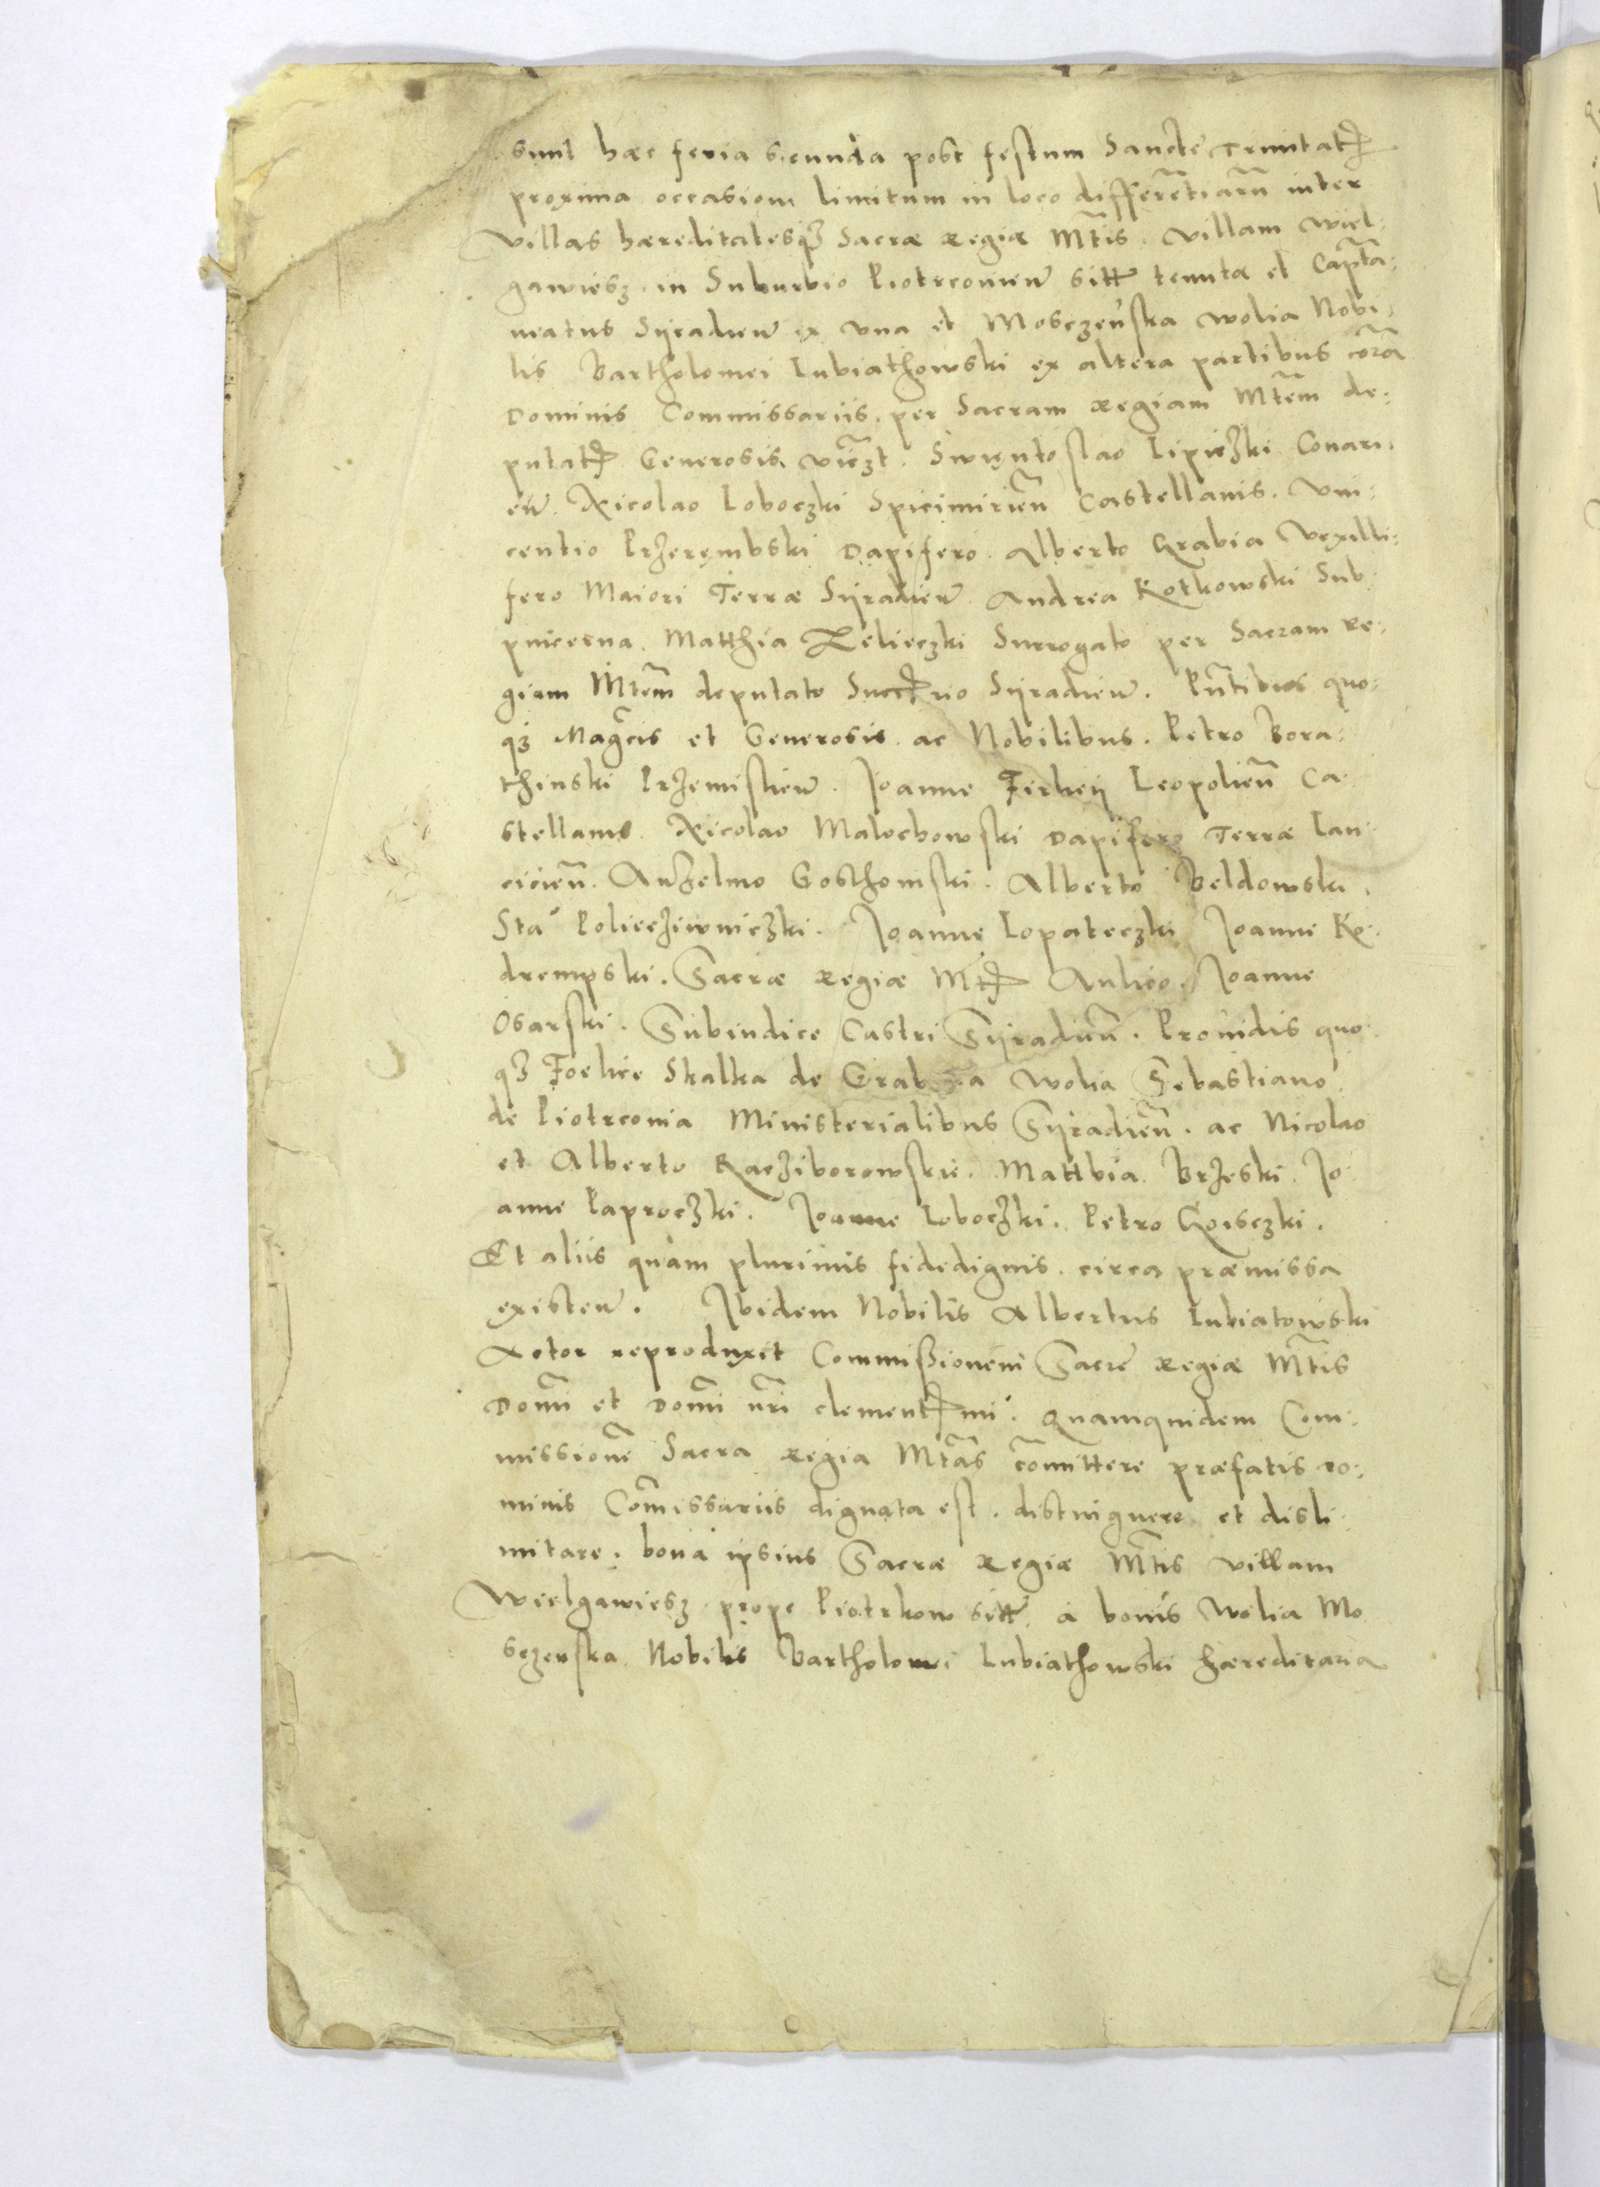 sunt hac feria secunda post festum Sanctę Trinitatꝭ
proxima occasione limitum in loco differe͂tiaru͂ inter
villas hæreditatesqꝫ Sacræ Regiæ Mt͂is. villam Wiel-
gawiesz. in Suburbio Piotrcovien͂ sitt͂ tenutæ et Capt͂a-
neatus Syradien͂ ex vna et Mosczeńska Wolia Nobi-
lis Bartholomei Lubiathowski ex altera partibus cora͂
Dominis Commissariis. per Sacram Regiam Mt͂em de-
putatꝭ Generosis. vic͂zt. Swiento slao Lipiczki Conari-
en͂ Nicolao Loboczki Spicimirien͂ Castellanis. Vin-
centio Przerembski Dapifero. Alberto Grabia Vexilli-
fero Maiori Terræ Syradien͂ Andrea Kotkowski Sub
pincerna. Matthia Zelieczki Surrogato per Sacram Re-
giam Mt͂em deputato Succꝭrio Syradien͂. Pn͂tibus quo-
qꝫ Mag͂cis et Generosis. ac Nobilibus. Petro Bora-
thinski Przemislien͂. Joanne Firliey Leopolien͂ Ca-
stellanis. Nicolao Malochowski Dapifero Terræ Lan-
cicien͂. Anzelmo Gosthomski. Alberto Beldowski.
Sta͂ Policziewniczki. Joanne Lopateczki Joanne Ko-
drempski. Sacræ Regiæ Mtꝭ Aulico. Joanne
Osarski. Subiudice Castri Syradien͂. Prouidis quo-
qꝫ Foelice Skalka de Wolia Sebastiano
de Piotrconia Ministerialibus Syradien͂. ac Nicolao
et Alberto Racziborowskie. Matthia Brzeski. Jo-
anne Paproczki. Joanne Loboczki. Petro Goisczki.
Et aliis quàm plurimis fidedignis. circa præmissa
existen͂. Ibidem Nobilis Albertus Lubiatowski
Actor reproduxit Commißionem Sacrę Regiæ Mt͂is
Dom͂i et Dom͂i nr͂i clementꝭmi. Quamquidem Com-
missione͂ Sacra Regia Mt͂as co͂mittere præfatis Do-
minis Com͂issariis dignata est. distinguere et disli-
mitare. bona ipsius Sacræ Regiæ Mt͂is villam
Wielgawiesz prope Piotrkow sitt͂. à bonis Wolia Mo
sczenska Nobilis Bartholomei Lubiathowski hæreditaria